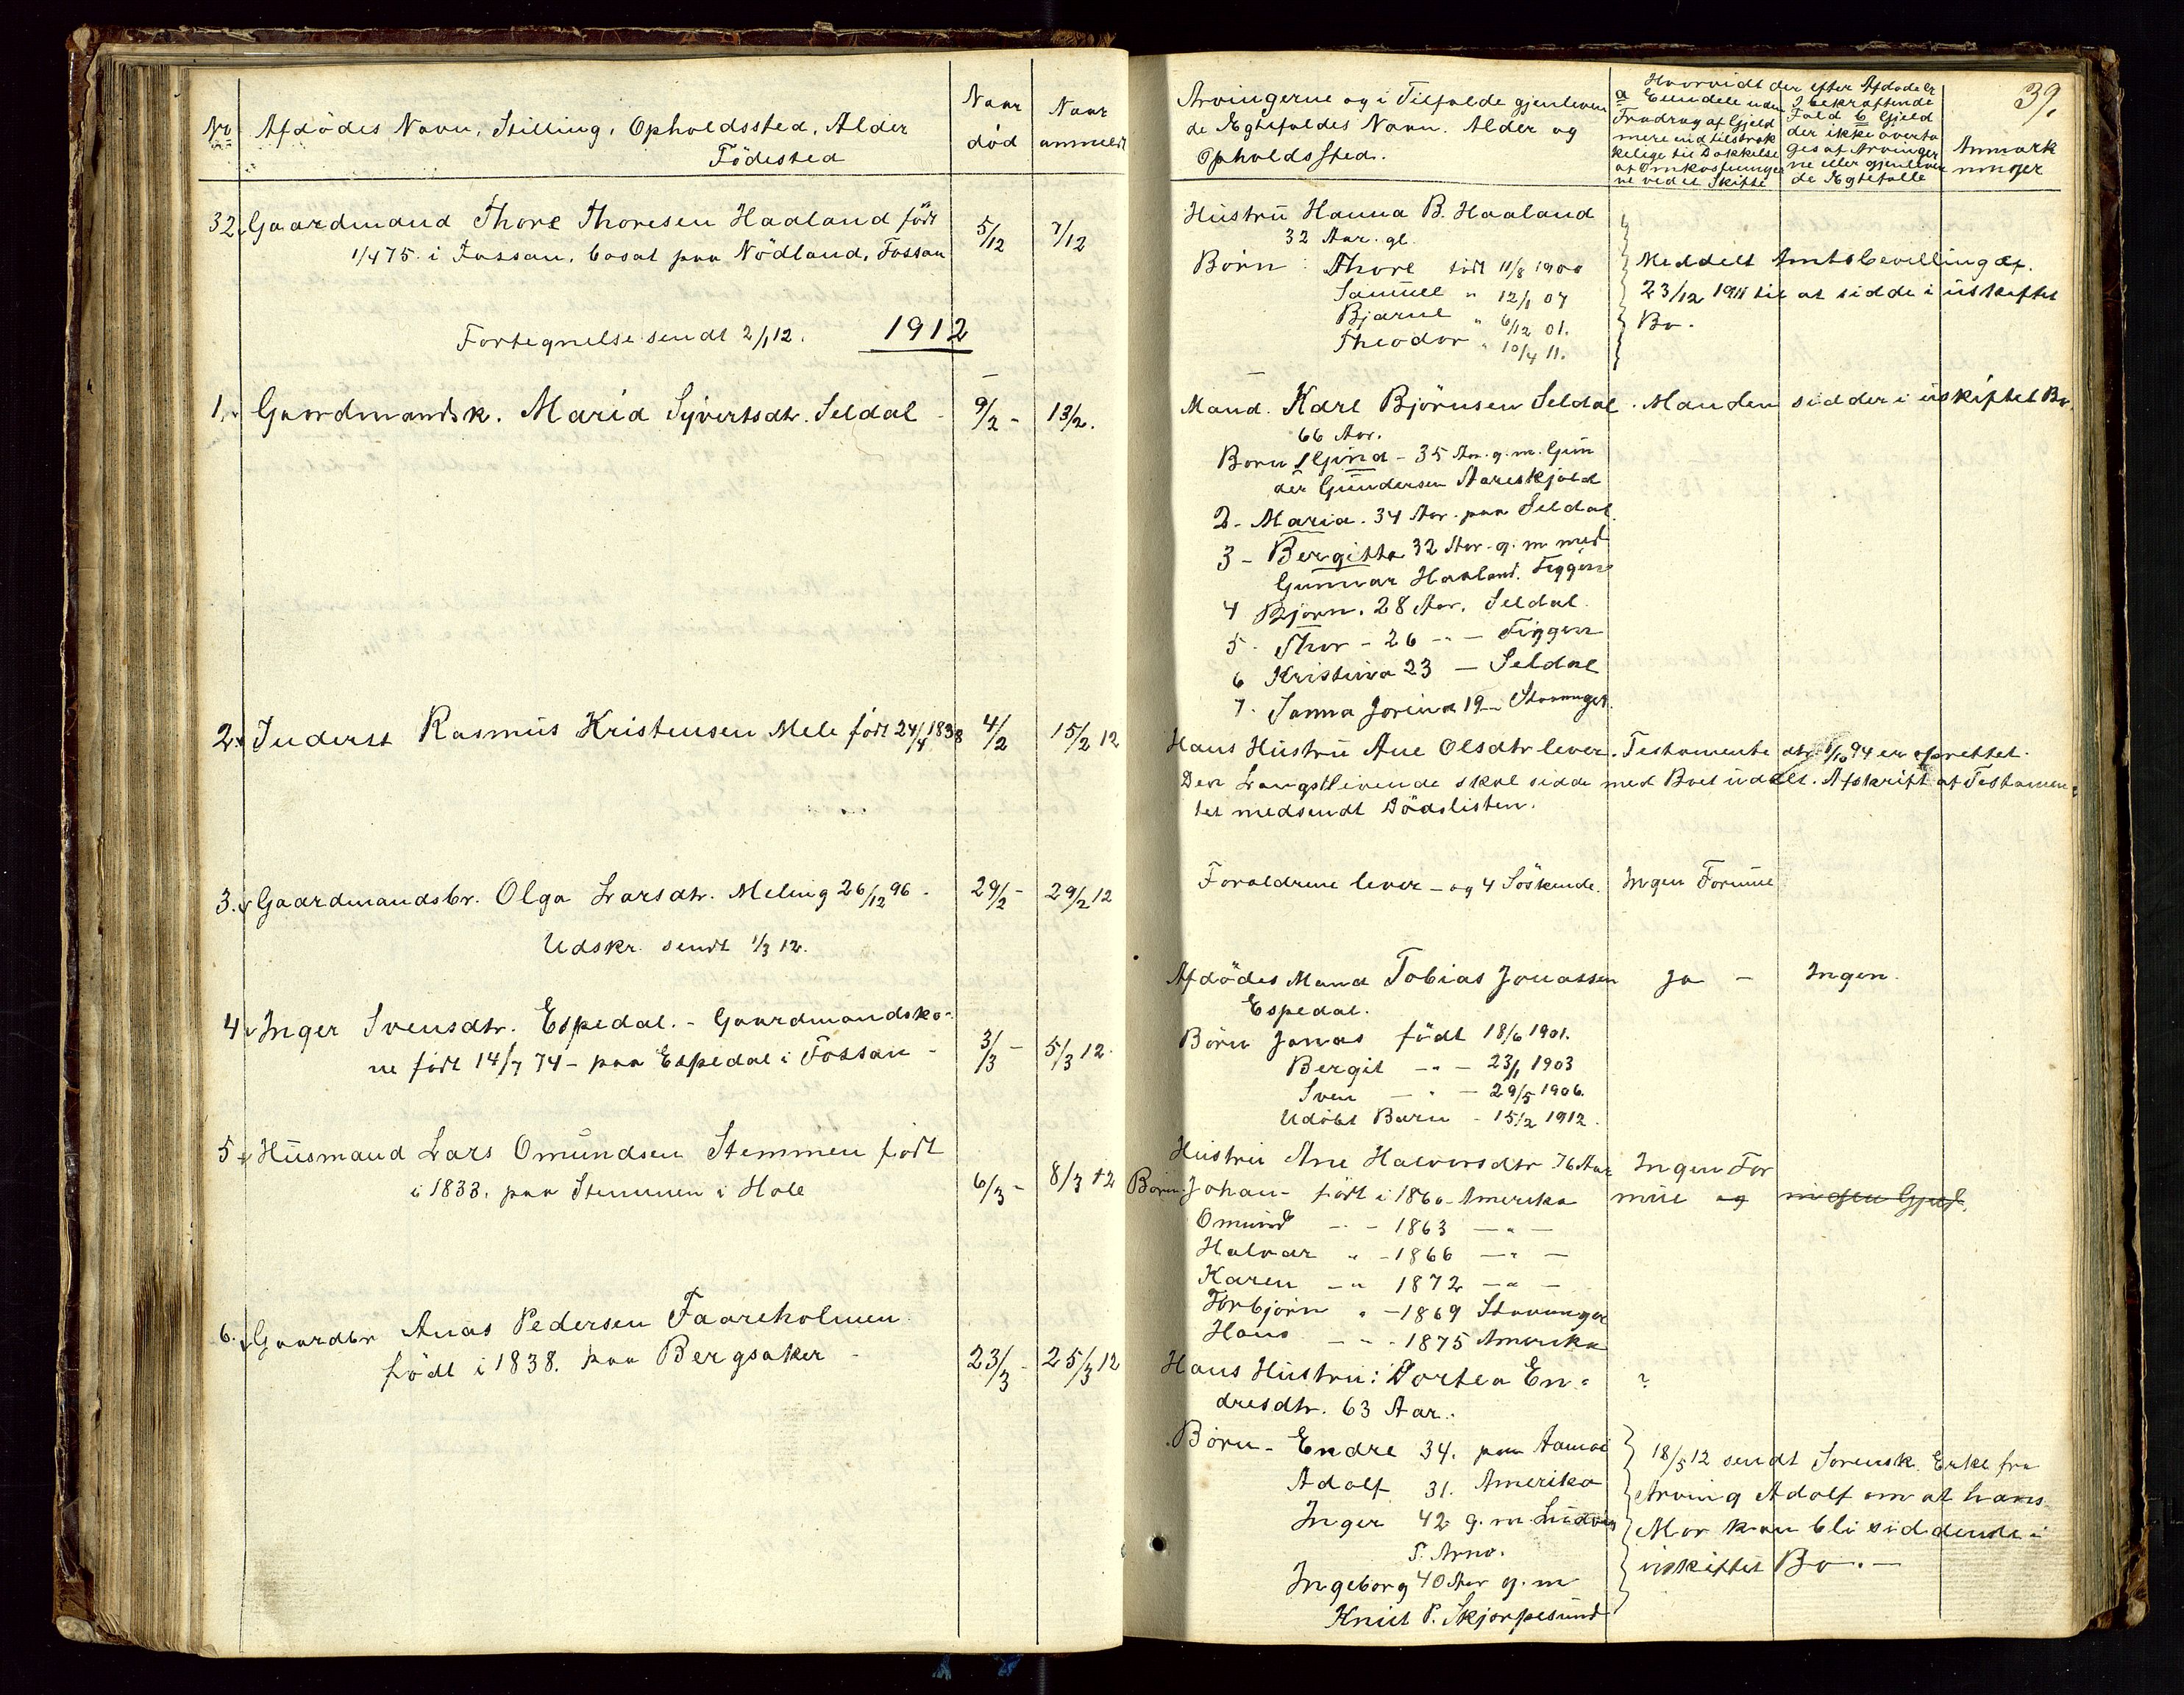 No Afdödes Navn, Stilling, Opholdssted, Alder
Födested
Naar död
Naar anmeldt
32. Gaardmand Thore Thoresen Haaland födt
1/4 75 i Fossan, bosat paa Nödland, Fossan
5/12
7/12
Fortegnelse sendt 2/1 12.
1912
1. Gaardmandsk. Maria Syvertsdtr. Seldal - 9/2 - 13/2.
2. Inderst Rasmus Kristensen Mele födt 24/4 1838 4/2 15/2 12
3. Gaardmandsbr. Olga Larsdtr. Meling 26/12 96 - 29/2 - 29/2 12
Udskr. sendt 1/3 12.
4. Inger Svensdtr. Espedal. - Gaardmandsko-
ne födt 14/7 74 - paa Espedal i Fossan - 3/3 - 5/3 12.
5. Husmand Lars Omundsen Stemmen födt
i 1833. paa Stemmen i Hole 6/3 - 8/3 12
6. Gaardbr Anas Pedersen Faareholmen
födt i 1838. paa Bergsaker - 23/3 - 25/3 12
39.
Arvingerne og i Tilfælde gjenleven
de Ægtefælles Navn. Alder og
Opholdssted.
Hvorvidt der efter Afdøde er
a Eiendele uden
Fradrag af Gjeld
mere end tilstræk
kelige til Dækkelse
af Omkostninger
ne ved et Skifte
I bekræftende
Fald b Gjeld
der ikke overta
ges af Arvinger
ne eller gjenleven
de Ægtefælle
Anmærk
ninger
Hustru Hanna B. Haaland
32 Aar. gl.
Børn: Thore født 11/8 1900
Samuel " 12/1 04
Bjarne " 6/12 01.
Theodor " 10/4 11.
Meddelt Amtsbevilling af.
23/12 1911 til at sidde i uskiftet
Bo.
Mand. Karl Björnsen Seldal. Manden sidder i uskiftet Bo.
66 Aar.
Born 1 Gjina - 35 Aar. g. m. Gun
der Gundersen Aareskjold
2 - Maria. 34 Aar. paa Seldal.
3 - Bergitta 32 Aar. g. m med
Gunnar Haaland. Figgen
4 Bjorn. 28 Aar. Seldal.
5. Thor - 26 -"- Figgen
6 Kristina 23 - Seldal
7. Sanna Jorina 19 - Stavanger.
Hans Hustru Ane Olsdtr lever. Testamente dtr. 1/10 94 er oprettet.
Den Længstlevende skal sidde med Boet udelt. Afskrift af Testamen
tet medsendt Dödslisten.
Foraldrene lever - og 4 Söskende. Ingen Formue
Afdödes Mand Tobias Jonassen Ja - Ingen.
Espedal.
Börn Jonas födt 18/6 1901.
Bergit -"- 23/1 1903
Sven -"- 29/5 1906.
Udöbt Barn - 15/2 1912.
Hustru Ane Halvorsdtr 76 Aar Ingen For
Börn. Johan - födt i 1860 - Amerika mue og ingen Gjeld.
Omund -"- 1863 -"-
Halvar " - 1866 -"-
Karen -"- 1872 -"-
Torbjörn " - 1869 Stavanger
Hans -"- 1875 Amerika
Hans Hustru: Dortea En- ?
dresdtr. 63 Aar.
Börn - Endre 34. paa Aamöi
Adolf 31. Amerika
Inger 42 g. m. Ludvig
T. Arnø.
Ingeborg 40 Aar g. m
Knut P. Skjorpesund
18/5 12 sendt Sorensk. Erkl fra
Arving Adolf om at hans
Mor kan bli siddende i
uskiftet Bo. -